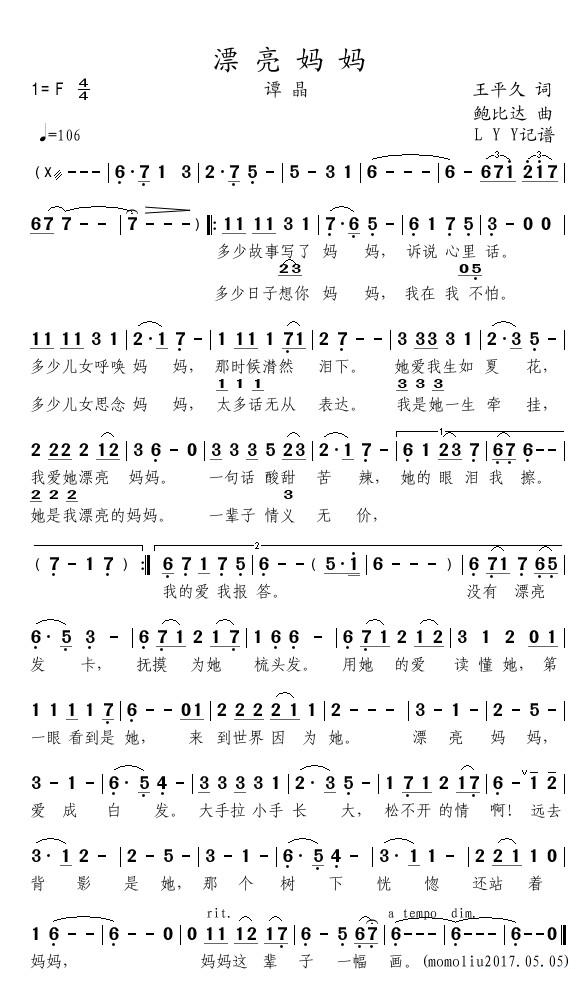 漂亮妈妈
1=F 4/4
谭晶
王平久 词
鲍比达 曲
L Y Y记谱
♩=106
(X - - - | 6·7 1 3 | 2·7 5 - | 5 - 3 1 | 6 - - - | 6 - 671 217 |
67 7 - - | 7 - - - ) |: 11 11 3 1 | 7·6 5 - | 6 1 7 5 | 3 - 0 0 |
多少故事写了 妈 妈， 诉说 心里 话。
23 05
多少日子想你 妈 妈， 我在 我 不怕。
11 11 3 1 | 2·1 7 - | 1 11 1 71 | 2 7 - - | 3 33 3 1 | 2·3 5 - |
多少儿女呼唤 妈 妈， 那时候潸然 泪下。 她爱我生如 夏 花，
1 1 1 3 3 3
多少儿女思念 妈 妈， 太多话无从 表达。 我是她一生 牵 挂，
2 22 2 12 | 3 6 - 0 | 3 3 3 5 23 | 2·1 7 - | 1. 6 1 23 7 | 67 6 - - |
我爱她漂亮 妈妈。 一句话 酸甜 苦 辣， 她的 眼 泪 我 擦。
2 2 2 3
她是我漂亮的妈妈。 一辈子 情义 无 价，
( 7 - 1 7 ) :| 2. 6 7 1 7 5 | 6 - - ( 5·1 | 6 - - - ) | 6 71 7 65 |
我的爱 我报 答。 没有 漂亮
6·5 3 - | 6 71 2 17 | 1 6 6 - | 6 71 2 12 | 3 1 2 01 |
发 卡， 抚摸 为她 梳头发。 用她 的爱 读 懂她，第
1 1 1 1 7 | 6 - - 01 | 2 2 2 2 1 1 | 2 - - - | 3 - 1 - | 2 - 5 - |
一眼 看到是 她， 来 到世界 因 为 她。 漂 亮 妈 妈，
3 - 1 - | 6·5 4 - | 3 3 3 3 1 | 2·3 5 - | 1 71 2 17 | 6 - 1 2 |
爱 成 白 发。 大手拉 小手 长 大， 松不开 的情 啊！ 远去
3·1 2 - | 2 - 5 - | 3 - 1 - | 6·5 4 - | 3 - 1 - | 2 2 1 1 0 |
背 影 是 她，那 个 树 下 恍 惚 还站 着
rit. a tempo dim.
1 6 - - | 6 - - 0 | 0 11 12 17 | 6 - 5 67 | 6 - - - | 6 - - 0 ‖
妈妈， 妈妈这 辈子 一幅 画。(momoliu2017.05.05)